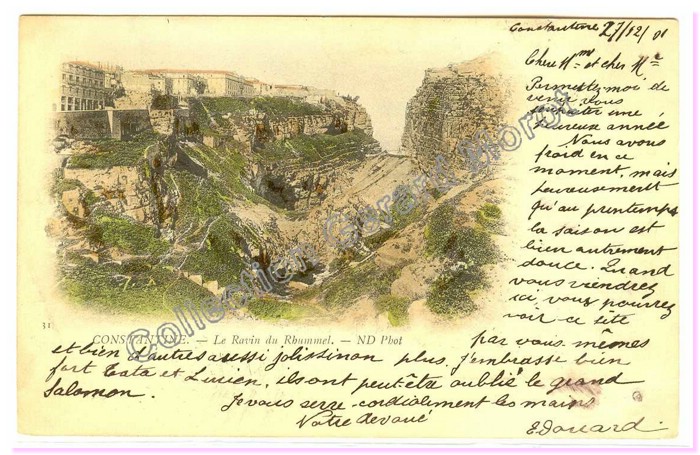 Constantine 27/12/01
Chere Mme et cher Mr
Permettez-moi de
venir vous
souhaiter une
heureuse année
Nous avons
froid en ce
moment, mais
heureusement
qu'au printemps
la saison est
bien autrement
douce. Quand
vous viendrez
ici, vous pourrez
voir ce site
par vous mêmes
et bien d'autres aussi jolis sinon plus. J'embrasse bien
fort Tata et Lucien, ils ont peut-être oublié le grand
Salomon.
Je vous serre cordialement les mains
Votre dévoué
Edouard
31
CONSTANTINE. — Le Ravin du Rhummel. — ND Phot
Collection Gérard Morot